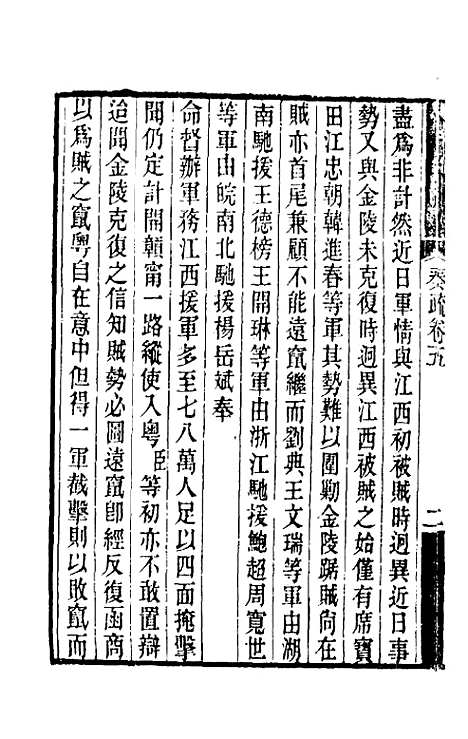 盡爲非計然近日軍情與江西初被賊時迥異近日事
勢又與金陵未克復時迥異江西被賊之始僅有席寶
田江忠朝韓進春等軍其勢難以圍勦金陵踞賊尙在
賊亦首尾兼顧不能遠竄繼而劉典王文瑞等軍由湖
南馳援王德榜王開琳等軍由浙江馳援鮑超周寬世
等軍由皖南北馳援楊岳斌奉
命督辦軍務江西援軍多至七八萬人足以四面掩擊
聞仍定計開贛甯一路縱使入粵臣等初亦不敢置辯
迨聞金陵克復之信知賊勢必圖遠竄卽經反復函商
以爲賊之竄粵自在意中但得一軍截擊則以敗竄而
奏疏卷五
二